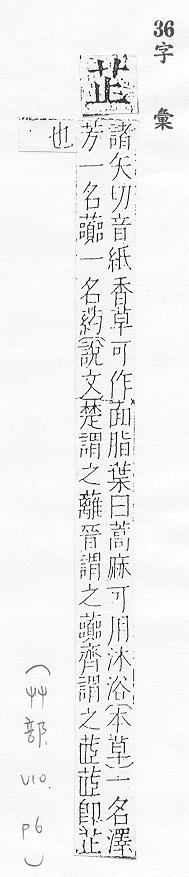 36 字彙
芷
諸矢切音紙香草可作面脂葉曰蒿麻可用沐浴(本草)一名澤
芳一名虈一名葯(說文)楚謂之蘺晉謂之虈齊謂之茝茝即芷
也
(艸部 V10. P6)